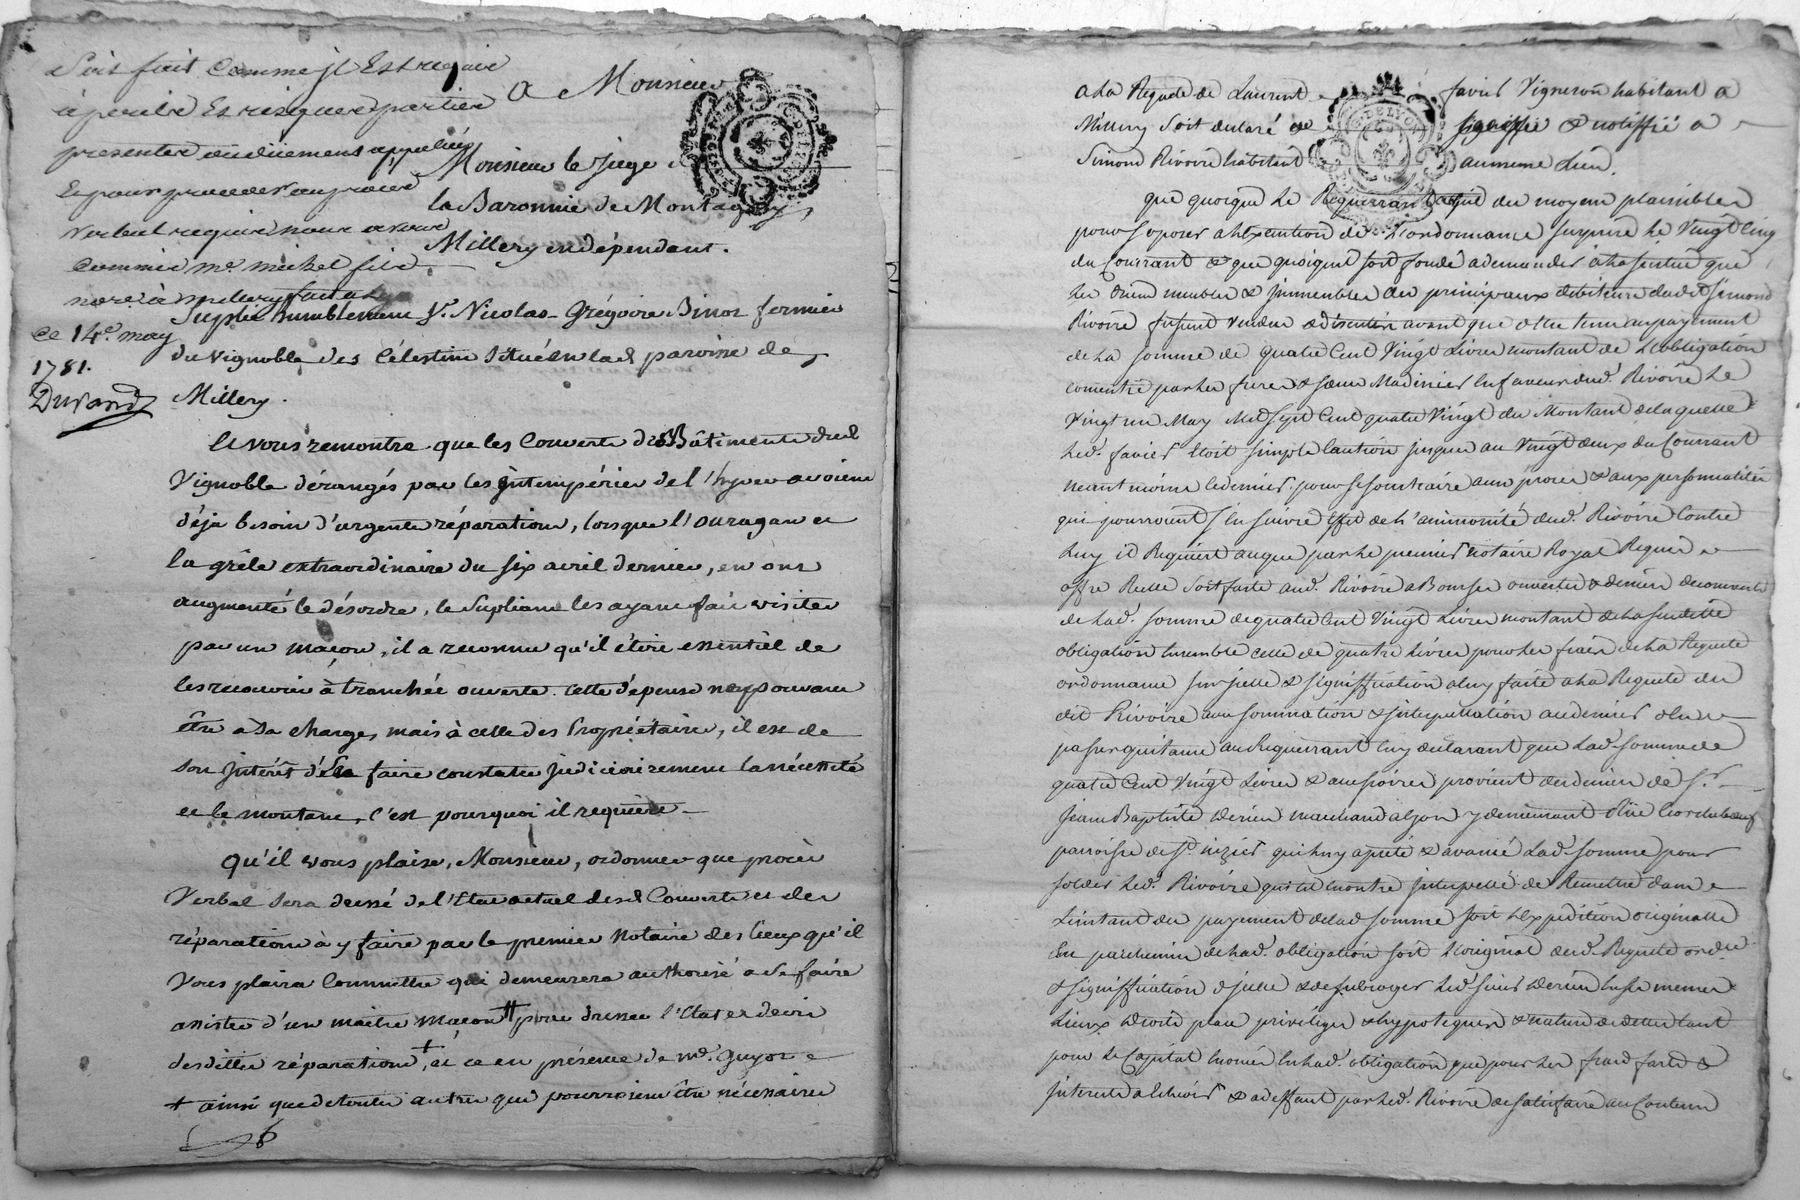 Soit fait comme jl Est requis
à perils Et risques partie
presente ou düement appellée
Et pour proceder au procès
verbal requis nous avons
commis me. michel fils
nore. à millery fait
ce 14e. may
1781.
Durand
A Monsieur
Monsieur le juge
la Baronnie de Montagny,
Millery en dépendant.
Suplie humblement Sr. Nicolas Grégoire Binot fermier
du vignoble des Célestins situé en lad. paroisse de
Millery.
Et vous remontre que les Couverts des Bâtiments dud
Vignoble dérangés par les intempéries de l'hyver avoient
déja besoin d'urgente réparations, lorsque l'ouragan et
la grêle extraordinaire du six avril dernier, en ont
augmenté le désordre, le Supliant les ayant fait visiter
par un maçon, il a reconnu qu'il étoit essentiel de
les recouvrir à tranchée ouverte. cette dépense ne pouvant
être à sa charge, mais à celle des Propriétaires, il est de
son jntérêt d'en faire constater judiciairement la nécessité
et le montant, c'est pourquoi il requière
Qu'il vous plaise, Monsieur, ordonner que procès
Verbal sera dressé de l'Etat actuel desd Couverts et des
réparations à y faire par le premier Notaire des lieux qu'il
Vous plaira Commettre qui demeurera authorisé a se faire
assister d'un maître maçon pour dresser l'Etat et devis
desdittes réparations + et ce en présence de me. guyot
+ ainsi que de touttes autres qui pourroient être nécessaires
A la Requete de Laurent favier Vigneron habitant a
Millery Soit declaré signiffié & notiffié a
Simond Rivoire habitant au meme Lieu.
que quoique Le Requerrant aye des moyens plausibles
pour s'oposer a l'Exécution de L'ordonnance surprise Le Vingt Cinq
du Courrant & que quoiqu'il soit fondé a demander
Les biens meubles & jmmeubles des principaux debiteurs dudit Simond
Rivoire fussent vendus & discutés avant que d'etre tenu au payement
de La somme de quatre Cent Vingt Livres montant de L'obligation
consentie par Les freres & soeur Madinier En faveur dud. Rivoire Le
Vingt un May Mil Sept Cent quatre Vingt du Montant de laquelle
Led. favier Etoit simple Caution jusques au Vingt deux du Courrant
neantmoins ledernier, pour se soustraire a un procès & aux personnalités
qui pourroient s'En suivre Effet de L'animosité dud. Rivoire Contre
Luy il Requiert auque par Le premier Notaire Royal Requis
offre Réelle Soit faitte aud. Rivoire a Bourse ouverte & denier decouverts
de Lad. somme de quatre Cent Vingt Livres montant de La susditte
obligation Ensemble celle de quatre Livres pour Les frais de La Requete
ordonnance sur jcelle & signiffication a luy faite a La Requete du
dit Rivoire avec sommation & jnterpellation audernier de
passer quittance au Requerrant luy declarant que Lad. somme de
quatre Cent Vingt Livres & accessoires provient des deniers de Sr.
Jean Baptiste marchand a Lyon y demeurant
parroisse de St. nizier qui luy a preté & avancé Lad. somme pour
solder Led. Rivoire qui est Encontre jnterpellé de Remettre dans
L'instant du payement de lad somme soit L'Expédition originalle
En parchemin de Lad. obligation soit L'original de lad. Requete ordce.
& signiffication d'jcelle & de subroger Led sieur En ses memes
Lieux Droits place privileges & hypoteques & nature de dette tant
pour Le Capital Enoncé En Lad. obligation que pour Les frais faits &
jnterets a Echeoir & a deffaut par Led. Rivoire de satisfaire au Contenu